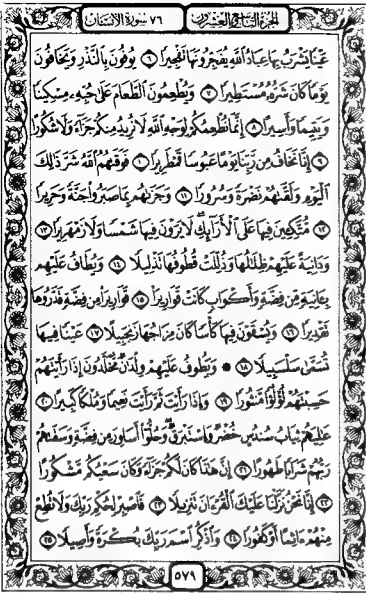 الجزء التاسع والعشرون ٧٦ سورة الإنسان
عَيْنًا يَشْرَبُ بِهَا عِبَادُ اللَّهِ يُفَجِّرُونَهَا تَفْجِيرًا ٦ يُوفُونَ بِالنَّذْرِ وَيَخَافُونَ
يَوْمًا كَانَ شَرُّهُ مُسْتَطِيرًا ٧ وَيُطْعِمُونَ الطَّعَامَ عَلَى حُبِّهِ مِسْكِينًا
وَيَتِيمًا وَأَسِيرًا ٨ إِنَّمَا نُطْعِمُكُمْ لِوَجْهِ اللَّهِ لَا نُرِيدُ مِنْكُمْ جَزَاءً وَلَا شُكُورًا
٩ إِنَّا نَخَافُ مِنْ رَبِّنَا يَوْمًا عَبُوسًا قَمْطَرِيرًا ١٠ فَوَقَاهُمُ اللَّهُ شَرَّ ذَلِكَ
الْيَوْمِ وَلَقَّاهُمْ نَضْرَةً وَسُرُورًا ١١ وَجَزَاهُمْ بِمَا صَبَرُوا جَنَّةً وَحَرِيرًا
١٢ مُتَّكِئِينَ فِيهَا عَلَى الْأَرَائِكِ لَا يَرَوْنَ فِيهَا شَمْسًا وَلَا زَمْهَرِيرًا ١٣
وَدَانِيَةً عَلَيْهِمْ ظِلَالُهَا وَذُلِّلَتْ قُطُوفُهَا تَذْلِيلًا ١٤ وَيُطَافُ عَلَيْهِمْ
بِآنِيَةٍ مِنْ فِضَّةٍ وَأَكْوَابٍ كَانَتْ قَوَارِيرَا ١٥ قَوَارِيرَا مِنْ فِضَّةٍ قَدَّرُوهَا
تَقْدِيرًا ١٦ وَيُسْقَوْنَ فِيهَا كَأْسًا كَانَ مِزَاجُهَا زَنْجَبِيلًا ١٧ عَيْنًا فِيهَا
تُسَمَّى سَلْسَبِيلًا ١٨ وَيَطُوفُ عَلَيْهِمْ وِلْدَانٌ مُخَلَّدُونَ إِذَا رَأَيْتَهُمْ
حَسِبْتَهُمْ لُؤْلُؤًا مَنْثُورًا ١٩ وَإِذَا رَأَيْتَ ثَمَّ رَأَيْتَ نَعِيمًا وَمُلْكًا كَبِيرًا ٢٠
عَالِيَهُمْ ثِيَابُ سُنْدُسٍ خُضْرٌ وَإِسْتَبْرَقٌ وَحُلُّوا أَسَاوِرَ مِنْ فِضَّةٍ وَسَقَاهُمْ
رَبُّهُمْ شَرَابًا طَهُورًا ٢١ إِنَّ هَذَا كَانَ لَكُمْ جَزَاءً وَكَانَ سَعْيُكُمْ مَشْكُورًا
٢٢ إِنَّا نَحْنُ نَزَّلْنَا عَلَيْكَ الْقُرْآنَ تَنْزِيلًا ٢٣ فَاصْبِرْ لِحُكْمِ رَبِّكَ وَلَا تُطِعْ
مِنْهُمْ آثِمًا أَوْ كَفُورًا ٢٤ وَاذْكُرِ اسْمَ رَبِّكَ بُكْرَةً وَأَصِيلًا ٢٥
٥٧٩